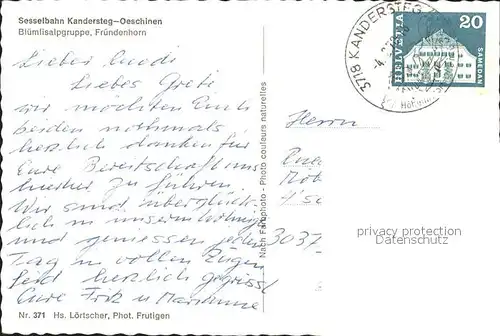 Sesselbahn Kandersteg-Oeschinen
Blümlisalpgruppe, Fründenhorn
Lieber Ruedi
Liebes Greti
wir möchten Euch
beiden nochmals
herzlich danken für
Eure Bereitschaft uns
hierher zu führen.
Wir sind überglück-
lich in unserer Wohnung
und geniessen jeden
Tag in vollen Zügen
Seid herzlich gegrüsst
Eure Fritz u Marianne
Nr. 371 Hs. Lörtscher, Phot. Frutigen
Nach Farbphoto - Photo couleurs naturelles
3718 KANDERSTEG
HELVETIA
20
SAMEDAN
Herrn
3037
privacy protection
Datenschutz